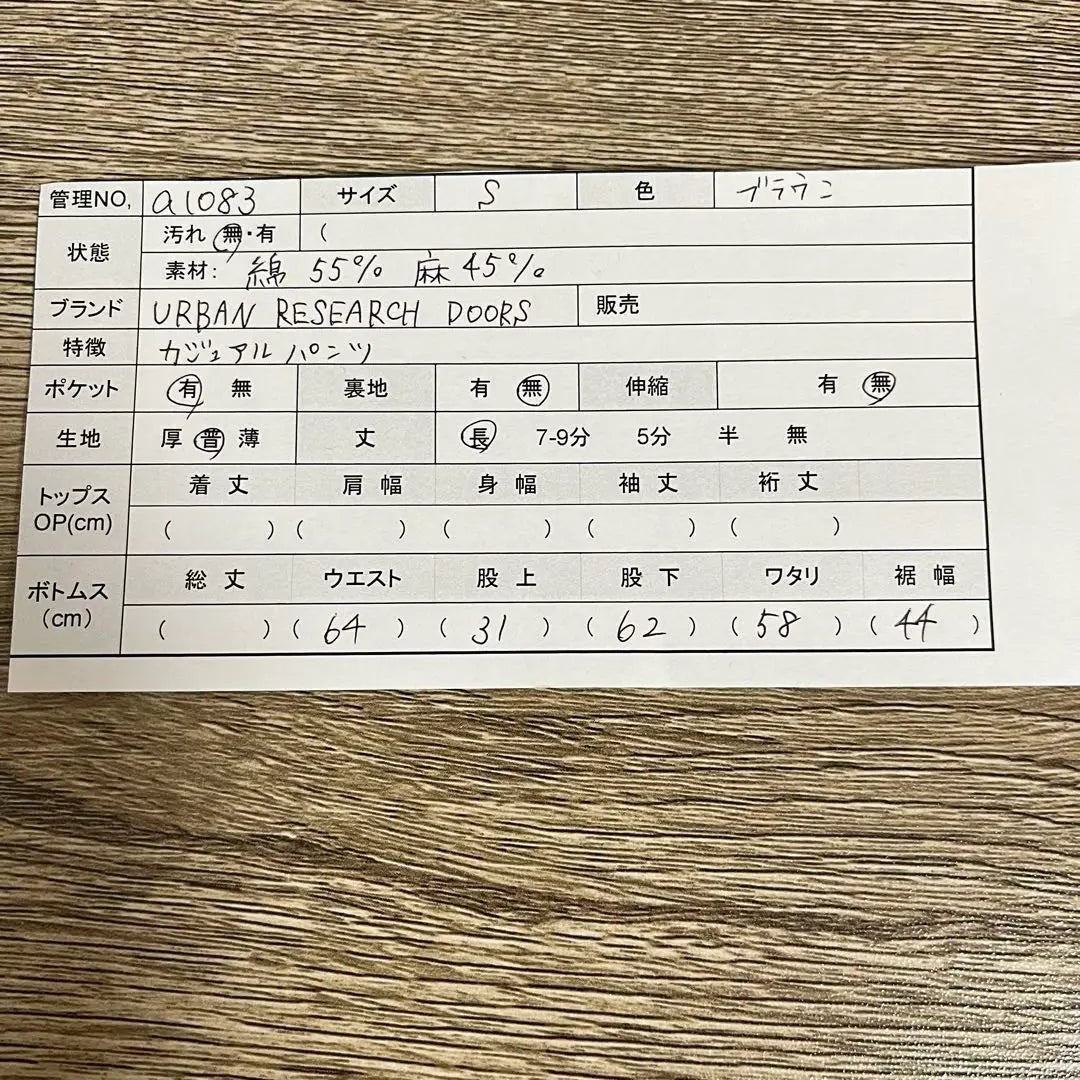 管理NO, a1083 サイズ S 色 ブラウン
状態 汚れ 無・有 (
素材: 綿 55% 麻 45%
ブランド URBAN RESEARCH DOORS 販売
特徴 カジュアルパンツ
ポケット 有 無 裏地 有 無 伸縮 有 無
生地 厚 普 薄 丈 長 7-9分 5分 半 無
トップス OP(cm) 着丈 肩幅 身幅 袖丈 裄丈
( ) ( ) ( ) ( ) ( )
ボトムス (cm) 総丈 ウエスト 股上 股下 ワタリ 裾幅
( ) ( 64 ) ( 31 ) ( 62 ) ( 58 ) ( 44 )